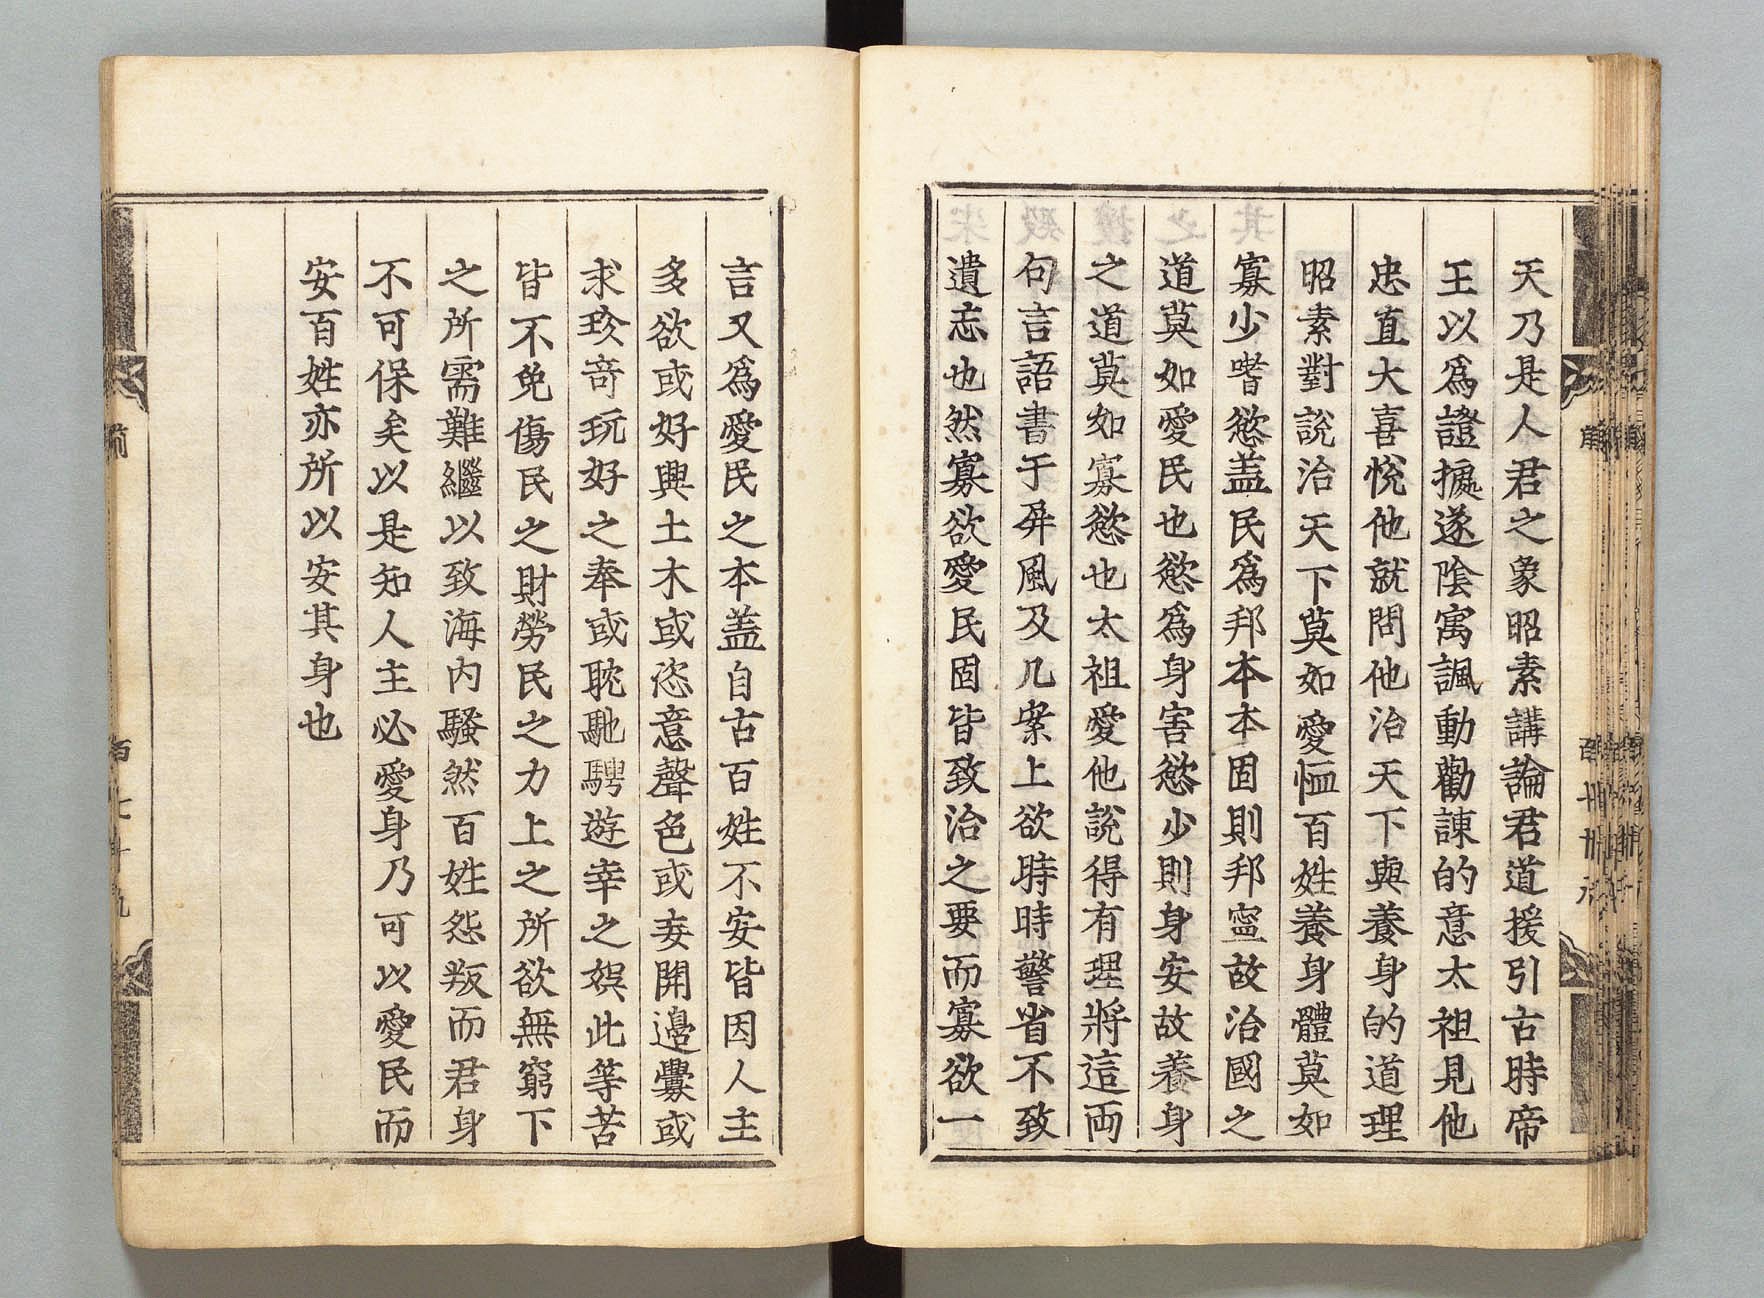 天乃是人君之象昭素講論君道援引古時帝
王以爲證據遂隂寓諷動勸諌的意太祖見他
忠直大喜悅他就問他治天下與養身的道理
昭素對說治天下莫如愛恤百姓養身體莫如
寡少嗜慾盖民爲邦本本固則邦寧故治國之
道莫如愛民也慾爲身害慾少則身安故養身
之道莫如寡慾也太祖愛他說得有理將這両
句言語書于屛風及几案上欲時時警省不致
遺忘也然寡欲愛民固皆致治之要而寡欲一
言又爲愛民之本盖自古百姓不安皆因人主
多欲或好興土木或恣意聲色或妄開邊釁或
求珍竒玩好之奉或耽馳騁遊幸之娛此等苦
皆不免傷民之財勞民之力上之所欲無窮下
之所需難繼以致海内騷然百姓怨叛而君身
不可保矣以是知人主必愛身乃可以愛民而
安百姓亦所以安其身也